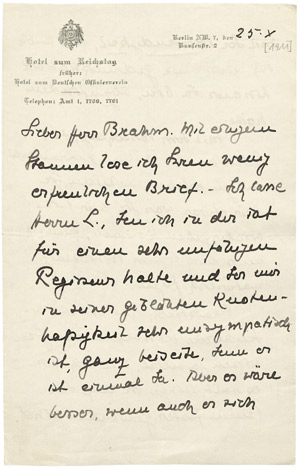 Berlin NW. 7, den 25. X
Bunsenstr. 2
[1911]
Hotel zum Reichstag
früher:
Hotel zum Deutschen Offizierverein
Telephon: Amt 1, 1760, 1761
Lieber Herr Brahm. Mit einigem
Staunen lese ich Ihren wenig
erfreulichen Brief. - Ich lasse
Herrn L., den ich in der Tat
für einen sehr unfähigen
Regisseur halte und der mir
in seiner
ist, ganz beiseite, denn er
ist einmal da. Aber es wäre
besser, wenn auch er sich